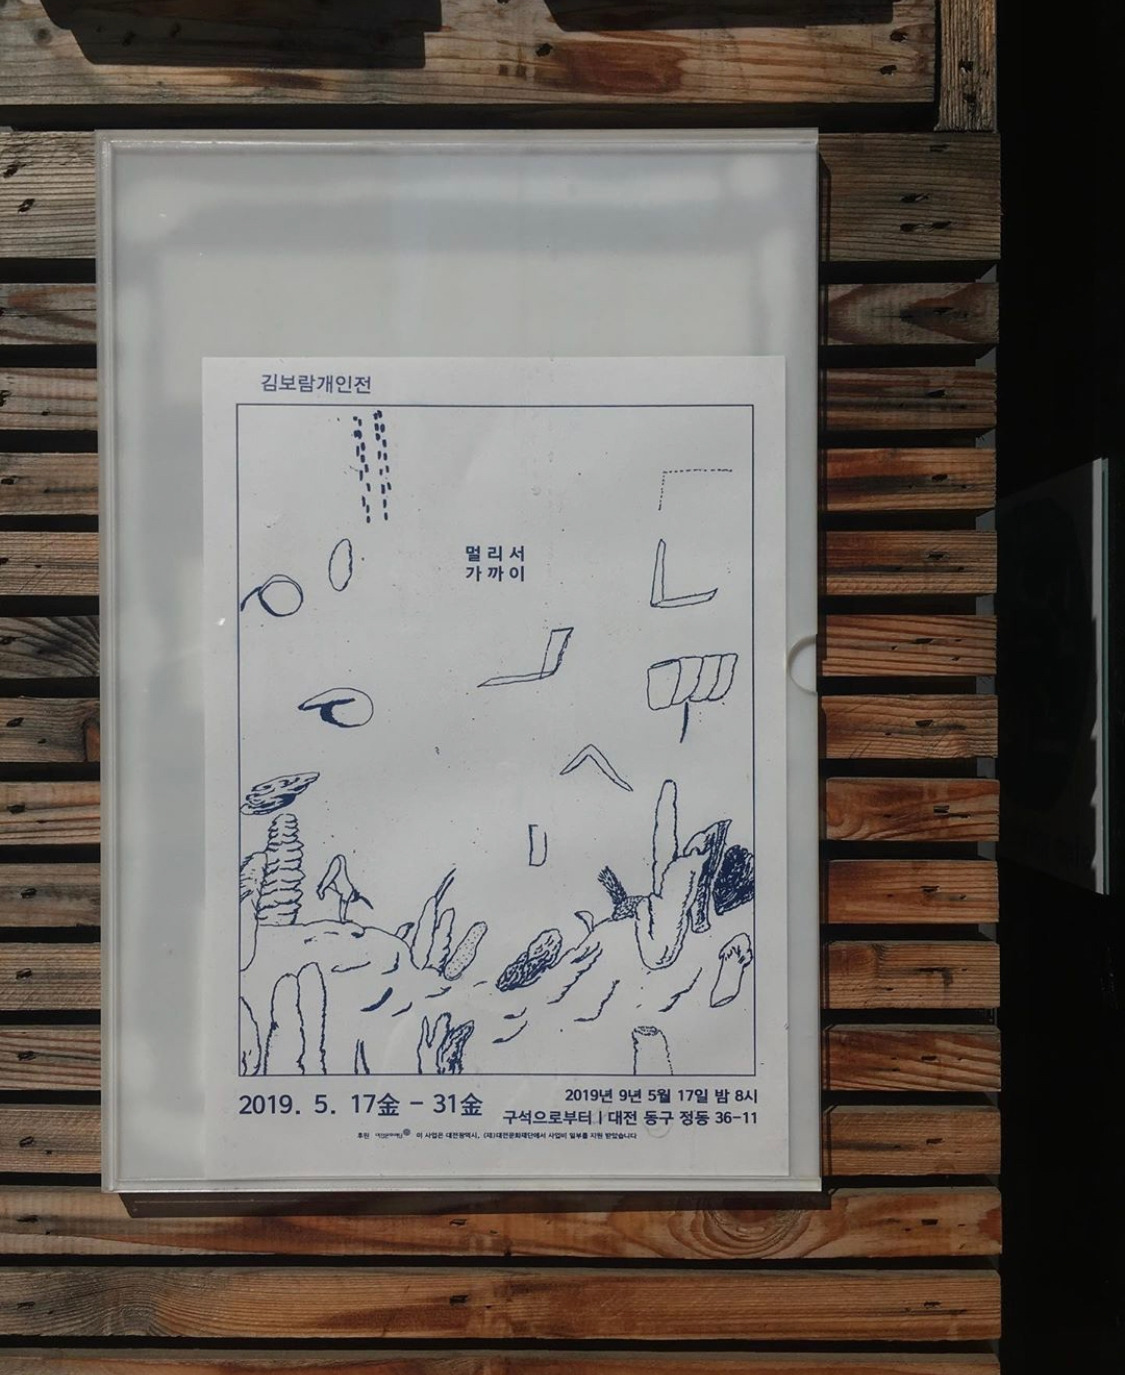 김보람개인전
멀리서
가까이
2019. 5. 17金 - 31金
2019년 9년 5월 17일 밤 8시
구석으로부터 | 대전 동구 정동 36-11
후원 이 사업은 대전광역시, (재)대전문화재단에서 사업비 일부를 지원 받았습니다